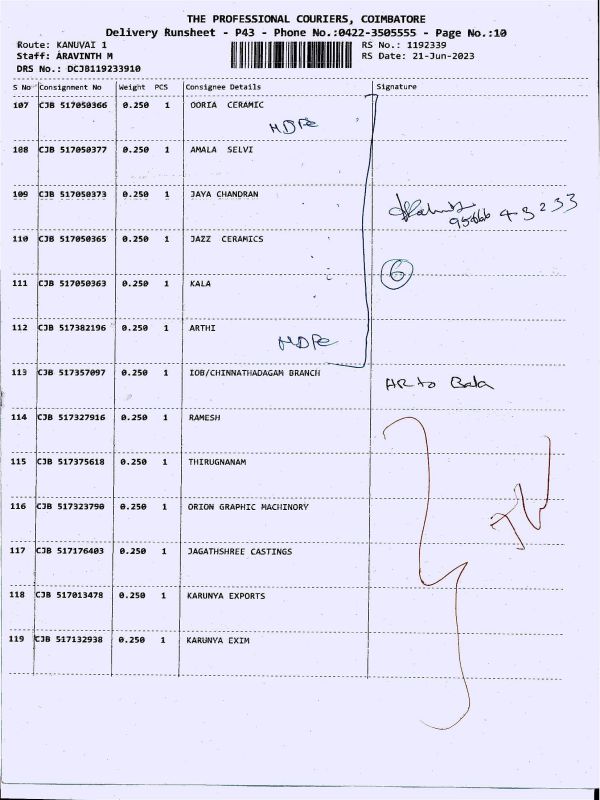 THE PROFESSIONAL COURIERS, COIMBATORE
Delivery Runsheet - P43 - Phone No.:0422-3505555 - Page No.:10
Route: KANUVAI 1 RS No.: 1192339
Staff: ARAVINTH M RS Date: 21-Jun-2023
DRS No.: DCJB119233910
S No Consignment No Weight PCS Consignee Details Signature
107 CJB 517050366 0.250 1 OORIA CERAMIC
HDPe
108 CJB 517050377 0.250 1 AMALA SELVI
109 CJB 517050373 0.250 1 JAYA CHANDRAN
43233
110 CJB 517050365 0.250 1 JAZZ CERAMICS
6
111 CJB 517050363 0.250 1 KALA
112 CJB 517382196 0.250 1 ARTHI
HDPe
113 CJB 517357097 0.250 1 IOB/CHINNATHADAGAM BRANCH
AR to Bala
114 CJB 517327916 0.250 1 RAMESH
115 CJB 517375618 0.250 1 THIRUGNANAM
116 CJB 517323790 0.250 1 ORION GRAPHIC MACHINORY
117 CJB 517176403 0.250 1 JAGATHSHREE CASTINGS
118 CJB 517013478 0.250 1 KARUNYA EXPORTS
119 CJB 517132938 0.250 1 KARUNYA EXIM